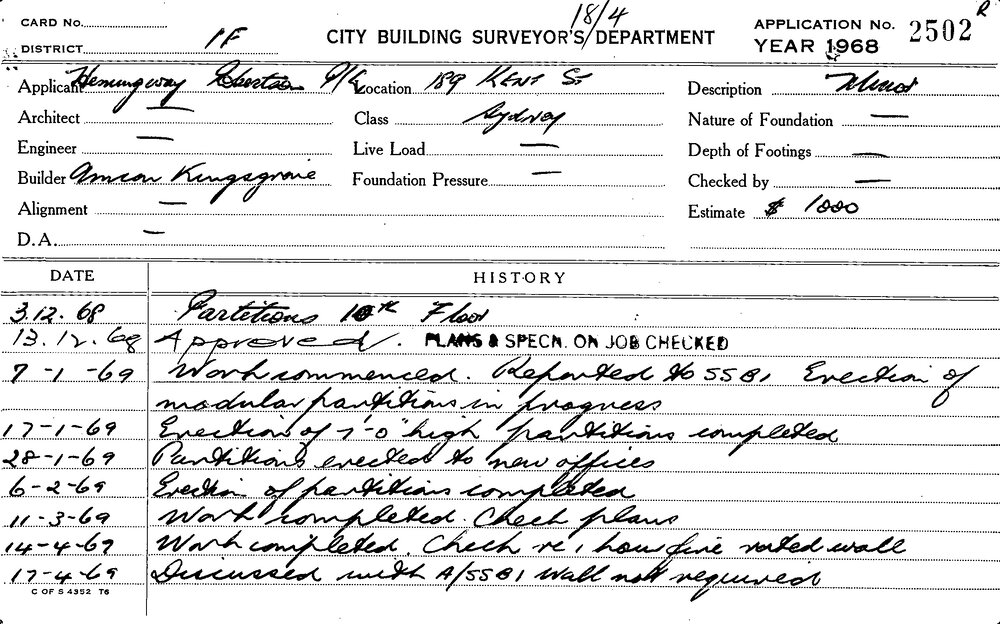 CARD No.
DISTRICT 1F
18/4
CITY BUILDING SURVEYOR'S DEPARTMENT
APPLICATION No. 2502 R
YEAR 1968
Applicant Hemingway Robertson P/L
Location 189 KENT St
Description
Architect —
Class Sydney
Nature of Foundation —
Engineer —
Live Load —
Depth of Footings —
Builder Kingsgrove
Foundation Pressure —
Checked by —
Alignment —
Estimate $ 1000
D.A. —
DATE HISTORY
3.12.68 Partitions 10th Floor
13.12.68 Approved. PLANS & SPECN. ON JOB CHECKED
7-1-69 Work commenced. Reported to SSB1 Erection of
modular partitions in progress
17-1-69 Erection of 7'-0" high partitions completed
28-1-69 Partitions erected to new offices
6-2-69 Erection of partitions completed
11-3-69 Work completed. Check plans
14-4-69 Work completed. Check re 1 hour fire rated wall
17-4-69 Discussed with A/SSB1 wall not required
C OF S 4352 T6